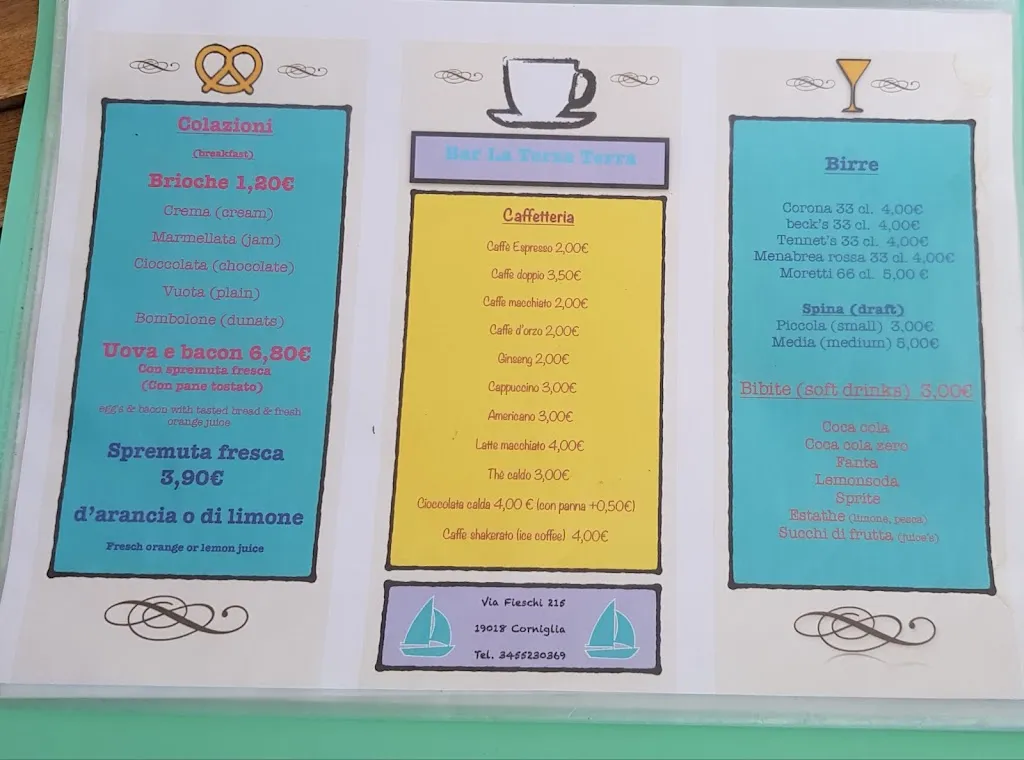 Colazioni
(breakfast)
Brioche 1,20€
Crema (cream)
Marmellata (jam)
Cioccolata (chocolate)
Vuota (plain)
Bombolone (dunats)
Uova e bacon 6,80€
Con spremuta fresca
(Con pane tostato)
eggs & bacon with tasted bread & fresh
orange juice
Spremuta fresca
3,90€
d'arancia o di limone
Fresch orange or lemon juice
Bar La Terza Terra
Caffetteria
Caffè Espresso 2,00€
Caffe doppio 3,50€
Caffe macchiato 2,00€
Caffe d'orzo 2,00€
Ginseng 2,00€
Cappuccino 3,00€
Americano 3,00€
Latte macchiato 4,00€
Thè caldo 3,00€
Cioccolata calda 4,00 € (con panna +0,50€)
Caffè shakerato (ice coffee) 4,00€
Via Fieschi 215
19018 Corniglia
Tel. 3455230369
Birre
Corona 33 cl. 4,00€
beck's 33 cl. 4,00€
Tennet's 33 cl. 4,00€
Menabrea rossa 33 cl. 4,00€
Moretti 66 cl. 5,00 €
Spina (draft)
Piccola (small) 3,00€
Media (medium) 5,00€
Bibite (soft drinks) 3,00€
Coca cola
Coca cola zero
Fanta
Lemonsoda
Sprite
Estathe (limone, pesca)
Succhi di frutta (juice's)